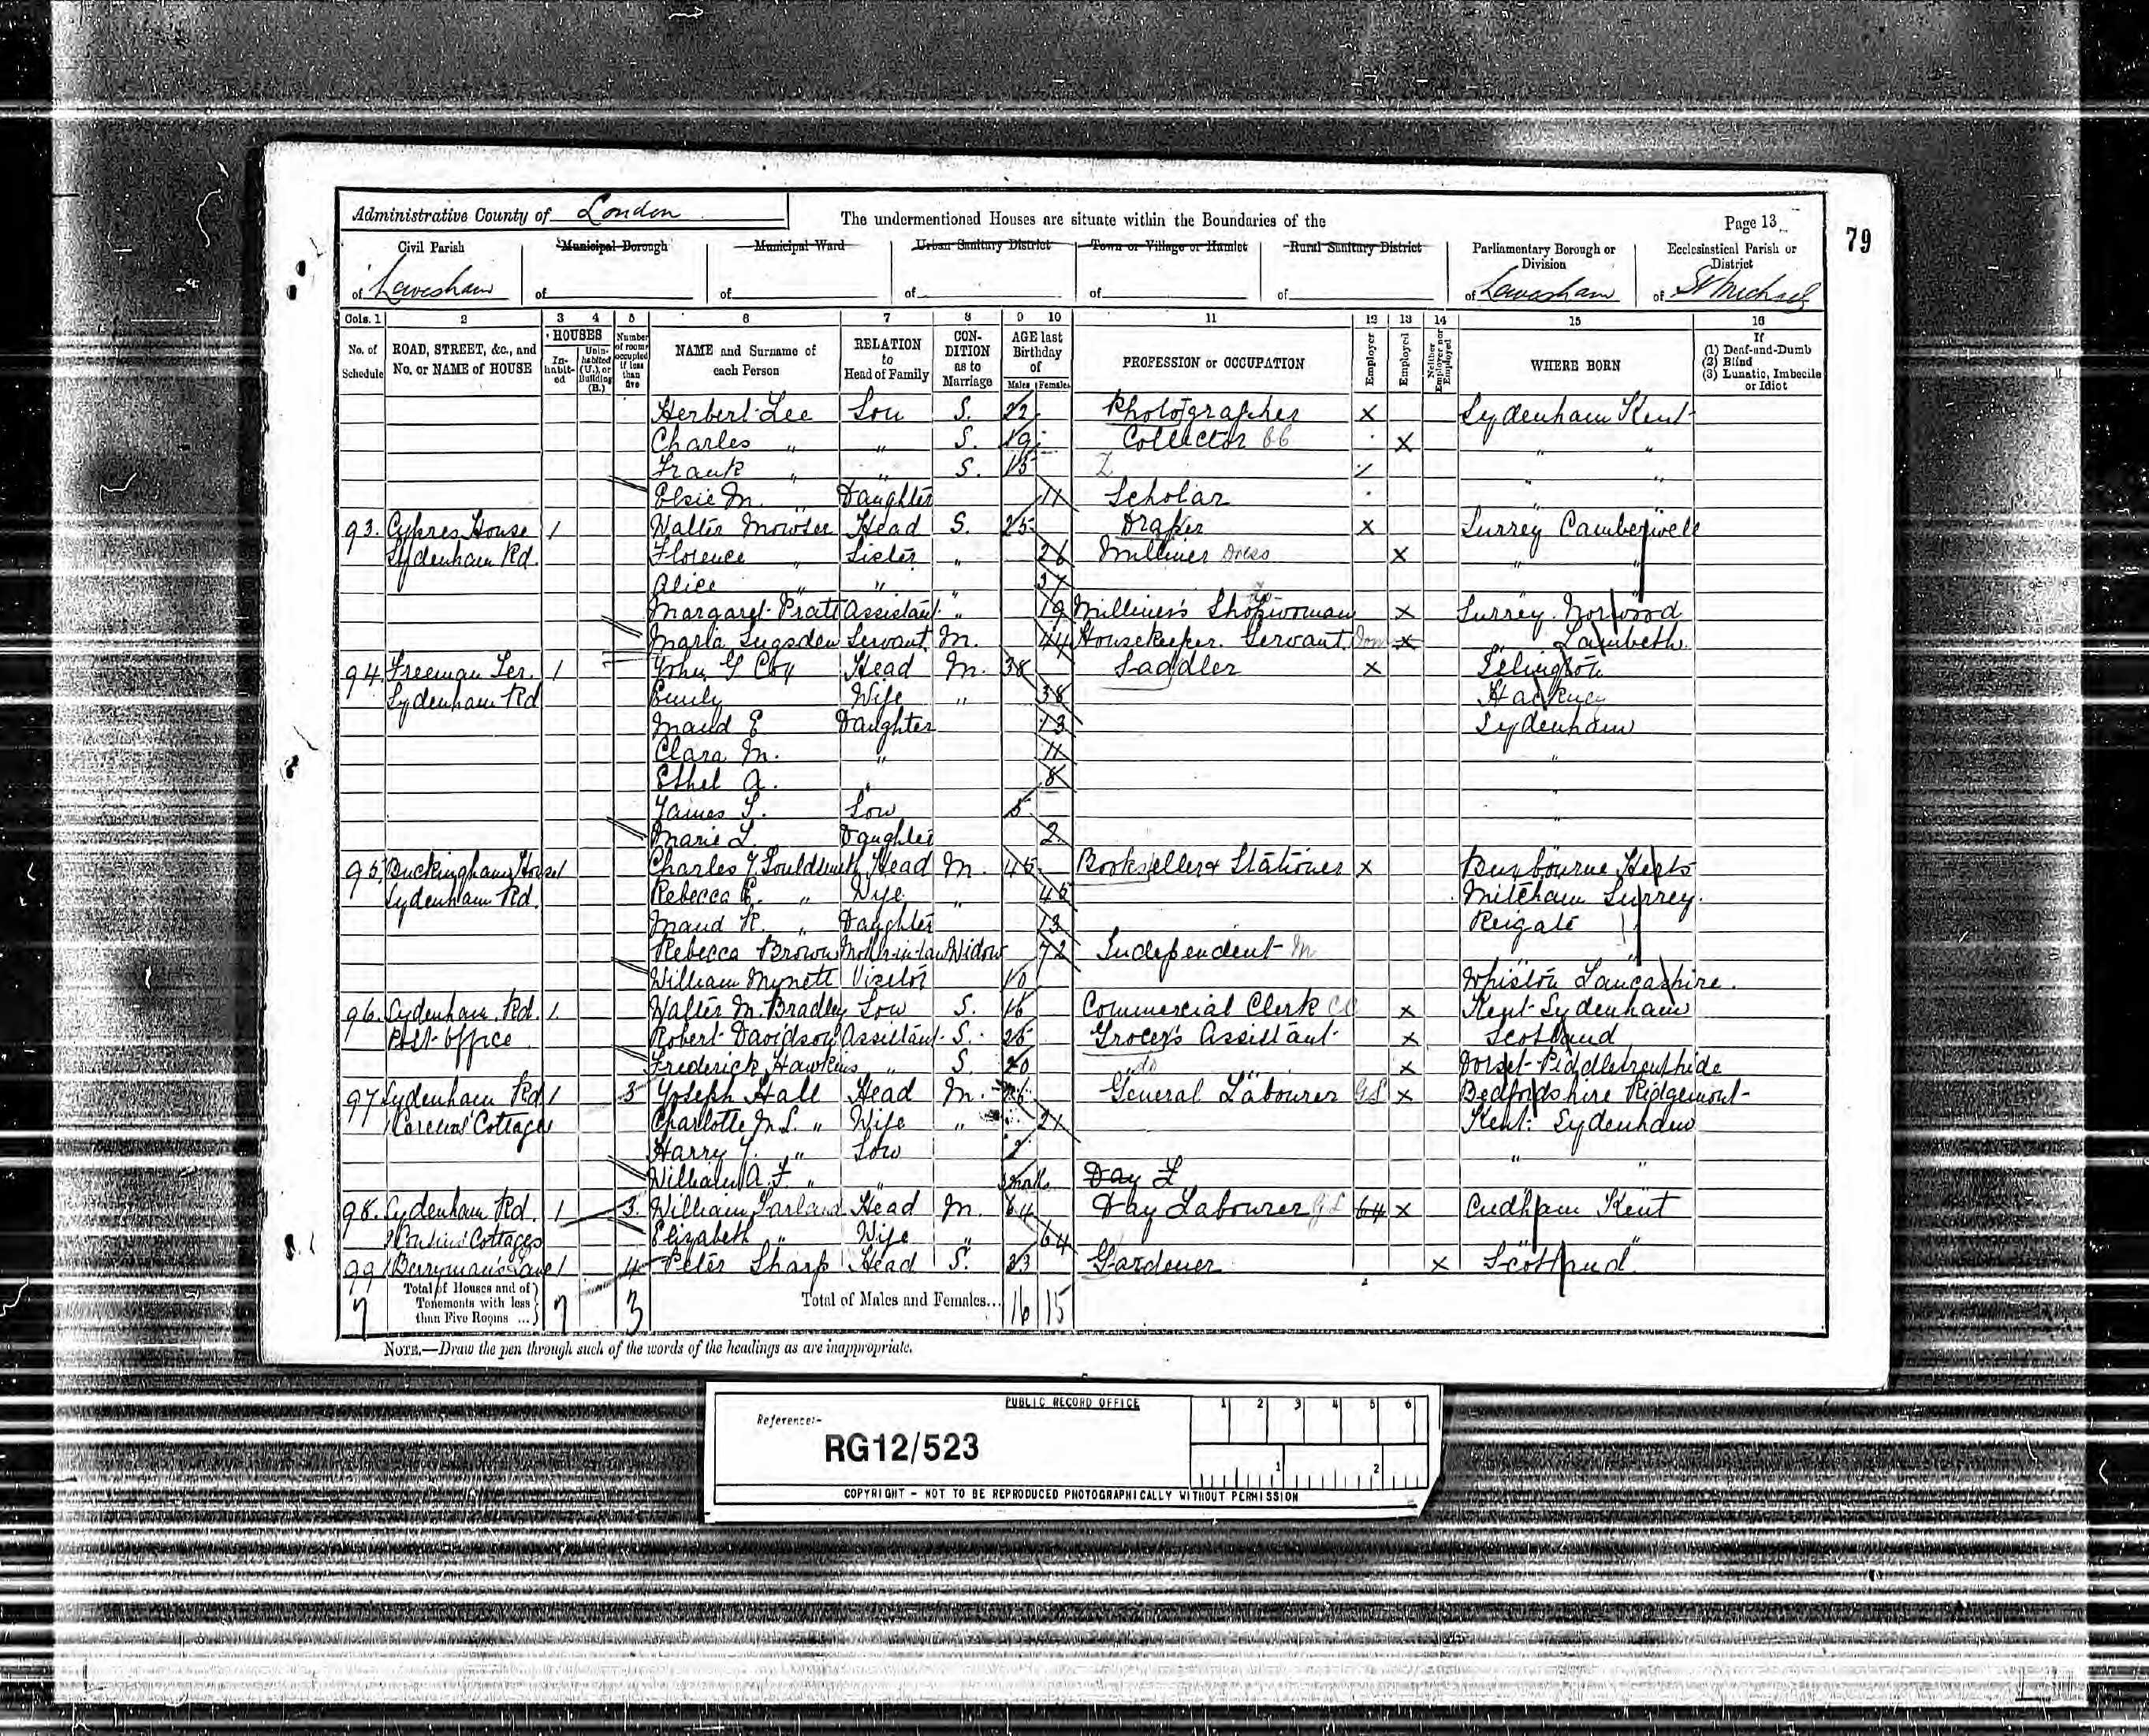 Administrative County of London
The undermentioned Houses are situate within the Boundaries of the
Page 13
79
Civil Parish
Municipal Borough
Municipal Ward
Urban Sanitary District
Town or Village or Hamlet
Rural Sanitary District
Parliamentary Borough or Division
Ecclesiastical Parish or District
of Lewisham of of of of of of Lewisham of St Michael
Cols. 1 2 3 4 5 6 7 8 9 10 11 12 13 14 15 16
No. of Schedule
ROAD, STREET, &c., and No. or NAME of HOUSE
HOUSES
Inhabited
Uninhabited (U.), or Building (B.)
Number of rooms occupied if less than five
NAME and Surname of each Person
RELATION to Head of Family
CONDITION as to Marriage
AGE last Birthday of
Males Females
PROFESSION or OCCUPATION
Employer
Employed
Neither Employer nor Employed
WHERE BORN
If
(1) Deaf-and-Dumb
(2) Blind
(3) Lunatic, Imbecile or Idiot
Herbert Lee Son S. 22 Photographer X Sydenham Kent
Charles " " S. 19 Collector X " "
Frank " " S. 15 " "
Elsie M. " Daughter 11 Scholar
93. Cypres House 1 Walter Mowser Head S. 25 Draper X Surrey Camberwell
Sydenham Rd. Florence " Sister " 26 Milliner Dress X " "
Alice " " "
Margaret Pratt Assistant " 19 Milliner's Shopwoman X Surrey Norwood
Maria Lugsden Servant M. 44 Housekeeper. Servant Dom X " Lambeth
94 Freeman Ter. 1 John G Coy Head M. 38 Saddler X Islington
Sydenham Rd Emily Wife " 38 Hackney
Maud E Daughter 13 Sydenham
Clara M. " 11 "
Ethel A. " 8
James S. Son 5 "
Marie L. Daughter 2 "
95 Buckingham House 1 Charles J Head M. 45 Bookseller & Stationer X Herts
Sydenham Rd. Rebecca E. " Wife " 45 Mitcham Surrey.
Maud R. " Daughter 13 Reigate
Rebecca Brown Mother-in-law Widow 72 Independent "
William Mynett Visitor 10 Whiston Lancashire.
96. Sydenham Rd. 1 Walter M. Bradley Son S. 16 Commercial Clerk X Kent Sydenham
Post office Robert Davidson Assistant S. Grocer's Assistant X Scotland
Frederick Hawkins " S. 20 do " X Dorset Piddletrenthide
97 Sydenham Rd 1 3 Joseph Hall Head M. 26 General Labourer GL X Bedfordshire Ridgemont
Cottages Charlotte M. S. " Wife " 21 Kent Sydenham
Harry J. " Son 2 " "
William A. F. " " Day L
98. Sydenham Rd. 1 3 William Garland Head M. 64 Day Labourer GL 64 X Cudham Kent
Cottages Elizabeth " Wife " 64 " "
99 Berrymans Lane 1 4 Peter Sharp Head S. 23 Gardener X Scotland
7 Total of Houses and of Tenements with less than Five Rooms ... 7 3 Total of Males and Females... 16 15
NOTE.—Draw the pen through such of the words of the headings as are inappropriate.
PUBLIC RECORD OFFICE
1 2 3 4 5 6
Reference:-
RG12/523
1 2
COPYRIGHT - NOT TO BE REPRODUCED PHOTOGRAPHICALLY WITHOUT PERMISSION